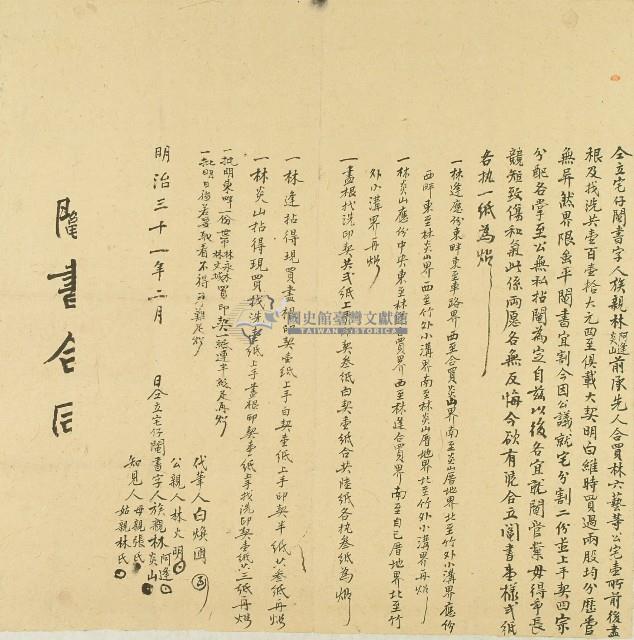 仝立宅仔鬮書字人族親林阿逢炎山前承先人合買林六藝等公宅壹所前後盡
根及找洗共壹百壹拾大元四至俱載大契明白維時買過兩股均分歷管
無異然界限出乎鬮書宜割今因公議就宅分割二份並上手契四宗
分配各掌至公無私拈鬮為定自茲以後各宜就鬮管業毋得爭長
競短致傷和氣此係兩愿各無反悔今欲有憑合立鬮書壹樣弍紙
各执一紙為炤
一林逢應份東畔東至車路界西至合買炎山界南至炎山厝地界北至竹外小溝界應份
西畔東至林炎山界西至竹外小溝界南至林炎山厝地界北至竹外小溝界再炤
一林炎山應份中央東至林 買界西至林逢合買界南至自己厝地界北至竹
外小溝界再炤
一盡根找洗印契共弍紙上手 契叁纸白契壹纸合共陸纸各执叁纸為炤
一林逢拈得現買盡根印契壹纸上手白契壹纸上手印契半纸共叁纸再炤
一林炎山拈得現買找洗 纸上手盡根印契壹纸上手找洗印契壹纸共三纸再炤
一批明東畔一份 林永木林文城買印契一紙連半紙足再炤
一批明日後若要取看不得刁難足炤
國史館臺灣文獻館
TAIWAN HISTORICA
明治三十一年二月 日仝立宅仔鬮書字人族親林阿逢炎山
代筆人白煥國
公親人林火明
母親張氏
知見人
姑親林氏
鬮書合同